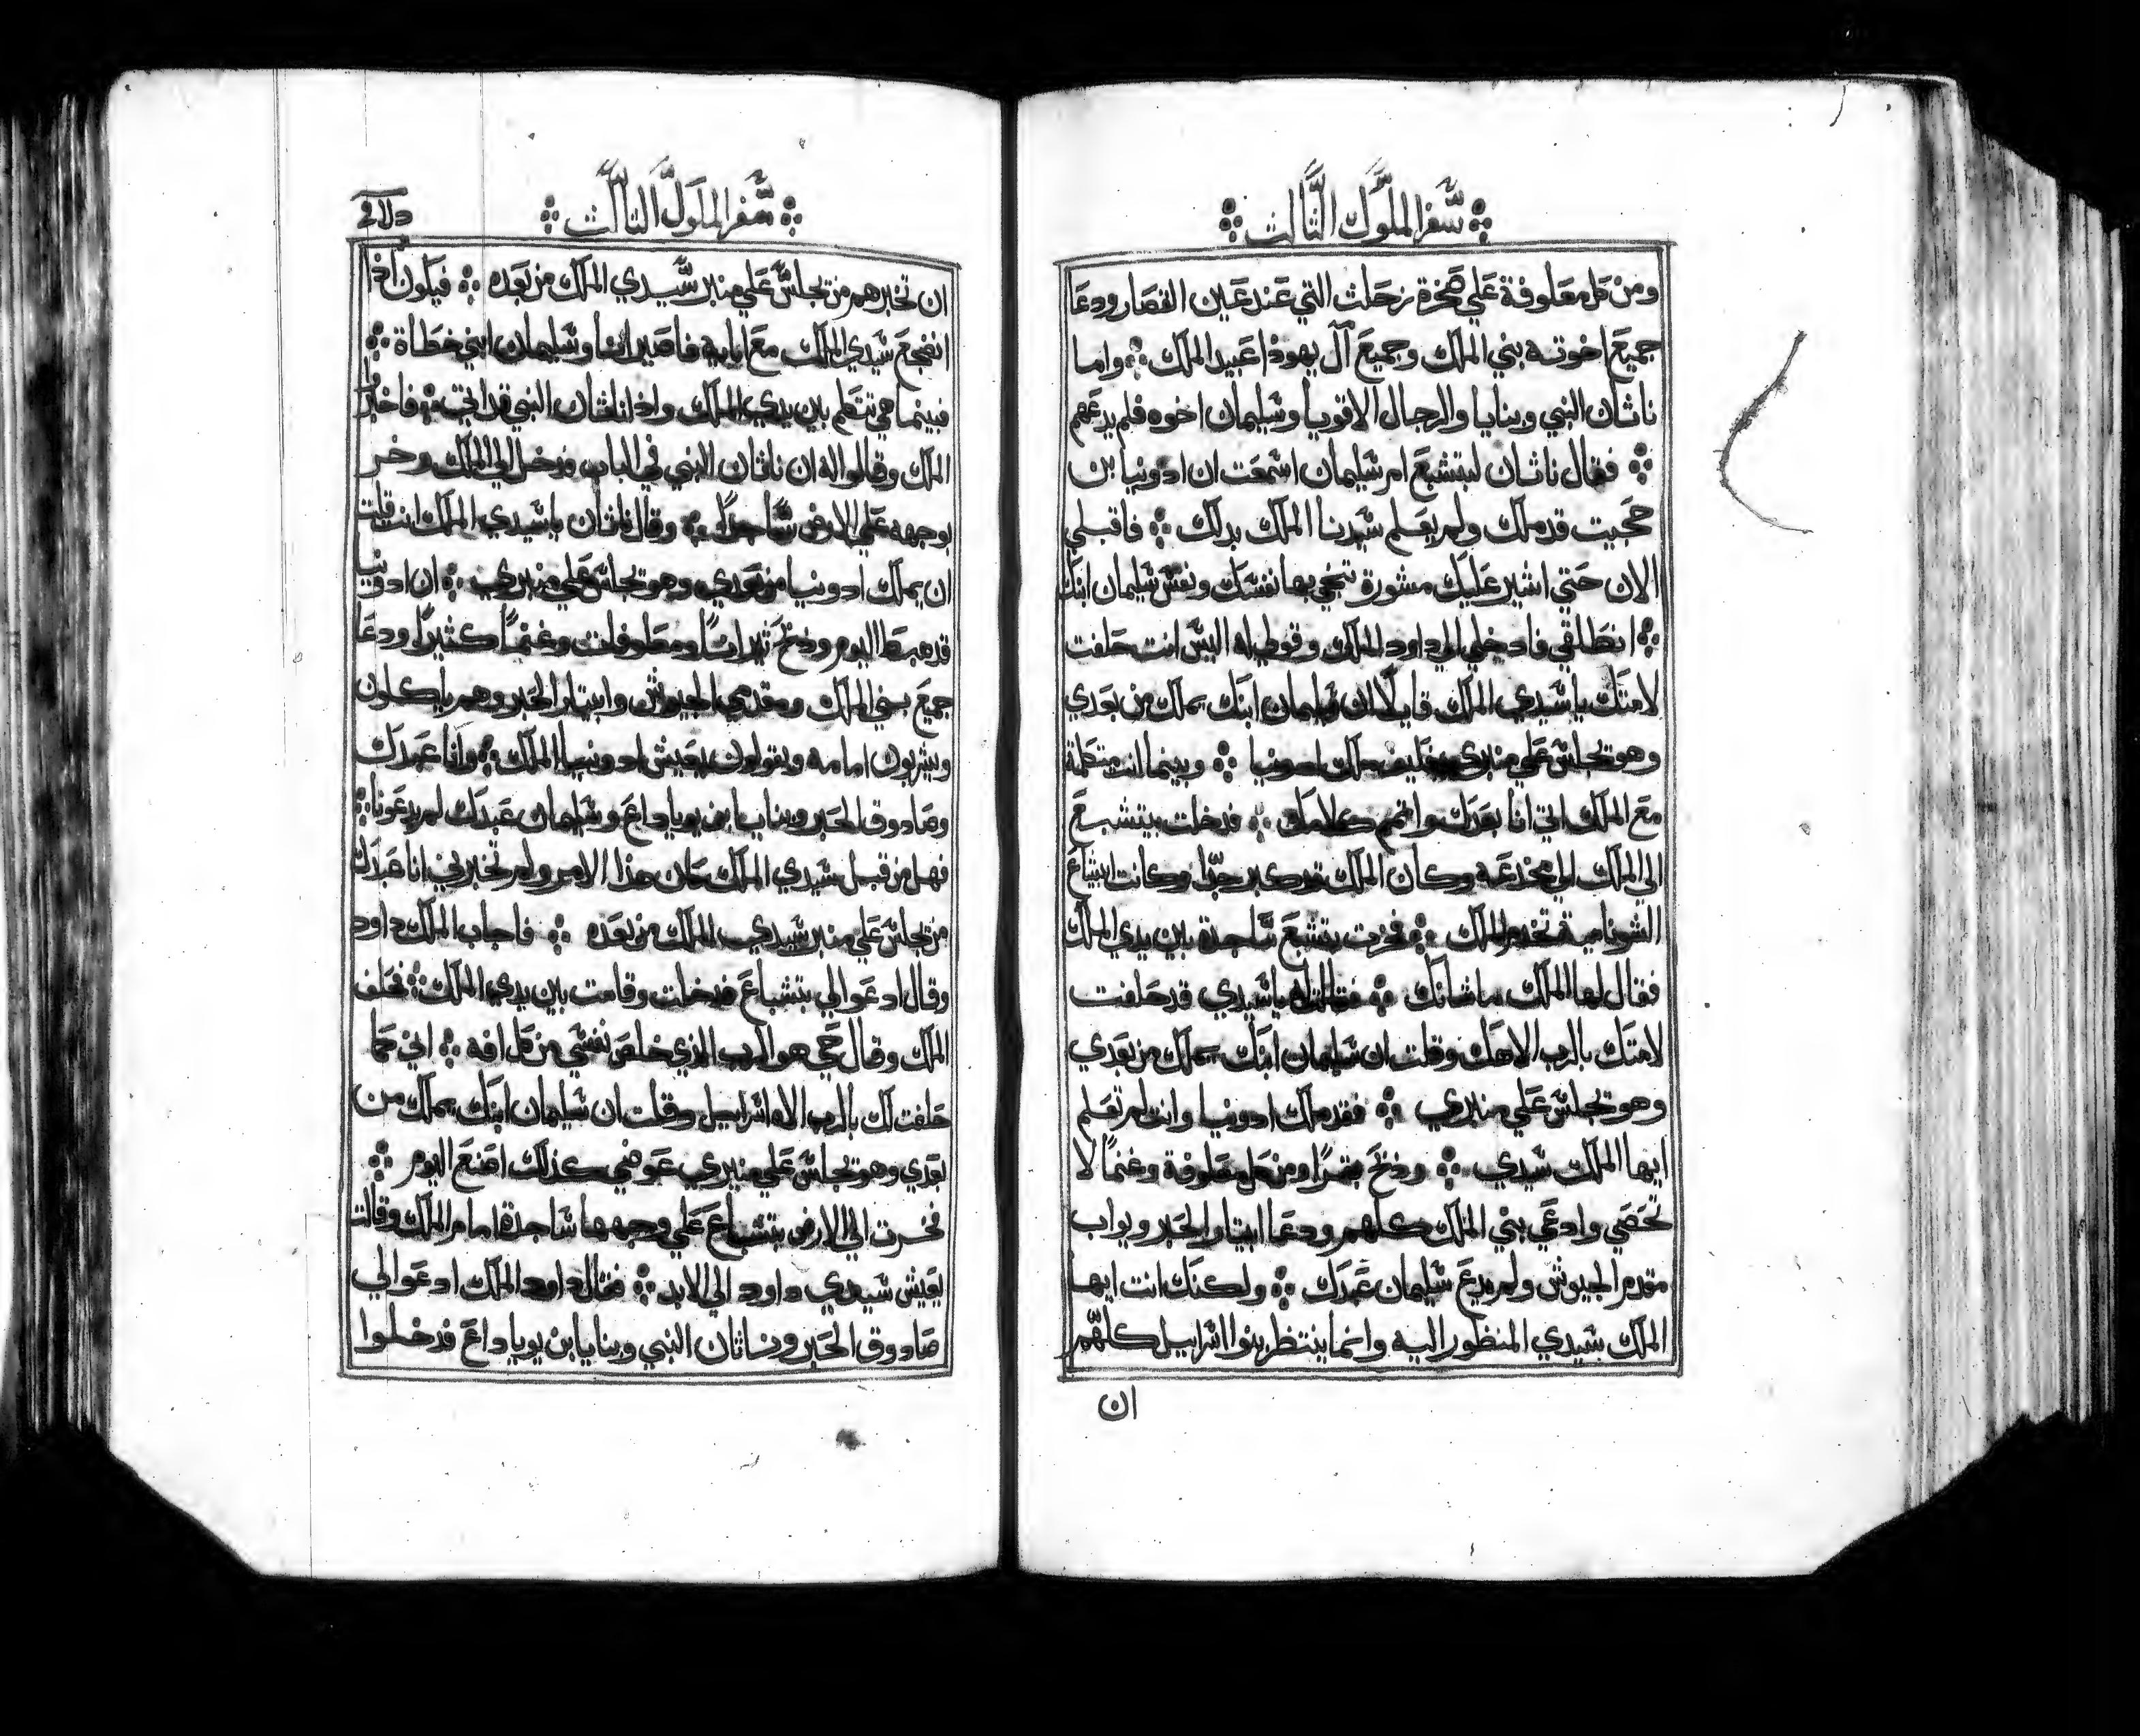 سفر الملوك الثالث
ومن كل معلوفة علي صخرة زحلث التي عند عين القصار ودعا
جميع اخوته بني الملك وجميع آل يهوذا عبيد الملك ܀ واما
ناثان النبي وبنايا والرجال الاقويا وسليمان اخوه فلم يدعهم
܀ فقال ناثان لبتشبع ام سليمان اسمعت ان ادونيا بن
حجيت قد ملك ولم يعلم سيدنا الملك بدلك ܀ فاقبلي
الان حتي اشير عليك مشورة تنجي بها نفسك ونفس سليمان ابنك
܀ انطلقي فادخلي الي داود الملك وقولي له اليس انت حلفت
لامتك يا سيدي الملك قايلًا ان سليمان ابنك يملك من بعدي
وهو يجلس علي منبري فكيف ملك ادونيا ܀ وبينما انت متكلمة
مع الملك اتي انا بعدك واتمم كلامك ܀ فدخلت بيتشبع
الي الملك الي مخدعه وكان الملك قد كبر جدًا وكانت ابيشاع
الشونامية تخدم الملك ܀ فخرت بتشبع ساجدة بين يدي الملك
فقال لها الملك ما شانك ܀ فقالت يا سيدي قد حلفت
لامتك بالرب الاهك وقلت ان سليمان ابنك يملك من بعدي
وهو يجلس علي منبري ܀ فقد ملك ادونيا وانت لم تعلم
ايها الملك سيدي ܀ وذبح بقرًا ومن كل معلوفة وغنمًا لا
تحصي وادعي بني الملك كلهم ودعا ابيتار الحبر ويواب
مقدم الجيوش ولم يدع سليمان عبدك ܀ ولكنك انت ايها
الملك سيدي المنظور اليه وانما ينتظر بنوا اسراييل كلهم
ان
سفر الملوك الثالث
ان تخبرهم من يجلس علي منبر سيدي الملك من بعده ܀ فيكون اذا
انضجع سيدي الملك مع ابايه فاصير انا وسليمان ابني خطاة ܀
فبينما هي تتكلم بين يدي الملك واذا ناثان النبي قد اتي ܀ فاخبر
الملك وقالوا له ان ناثان النبي في الباب فدخل الي الملك وخر
بوجهه علي الارض ساجدًا ܀ وقال ناثان يا سيدي الملك انت قلت
ان يملك ادونيا من بعدي وهو يجلس علي منبري ܀ ان ادونيا
قد هبط اليوم وذبح ثيرانًا ومعلوفات وغنمًا كثيرًا ودعا
جميع بني الملك ومقدمي الجيوش وابيتار الحبر وهم ياكلون
ويشربون امامه ويقولون يعيش ادونيا الملك ܀ وانا عبدك
وصادوق الحبر وبنايا ابن يوياداع وسليمان عبدك لم يدعونا ܀
فهل من قبل سيدي الملك كان هذا الامر ولم تخبرني انا عبدك
من يجلس علي منبر سيدي الملك من بعده ܀ فاجاب الملك داود
وقال ادعوا لي بتشباع فدخلت وقامت بين يدي الملك ܀ فحلف
الملك وقال حي هو الرب الذي خلص نفسي من كل افه ܀ اني كما
حلفت لك بالرب الاه اسراييل وقلت ان سليمان ابنك يملك من
بعدي وهو يجلس علي منبري عوضي كذلك اصنع اليوم ܀
فخرت الي الارض بتشباع علي وجهها ساجدة امام الملك وقالت
يعيش سيدي داود الي الابد ܀ فقال داود الملك ادعوا لي
صادوق الحبر وناثان النبي وبنايا بن يوياداع فدخلوا